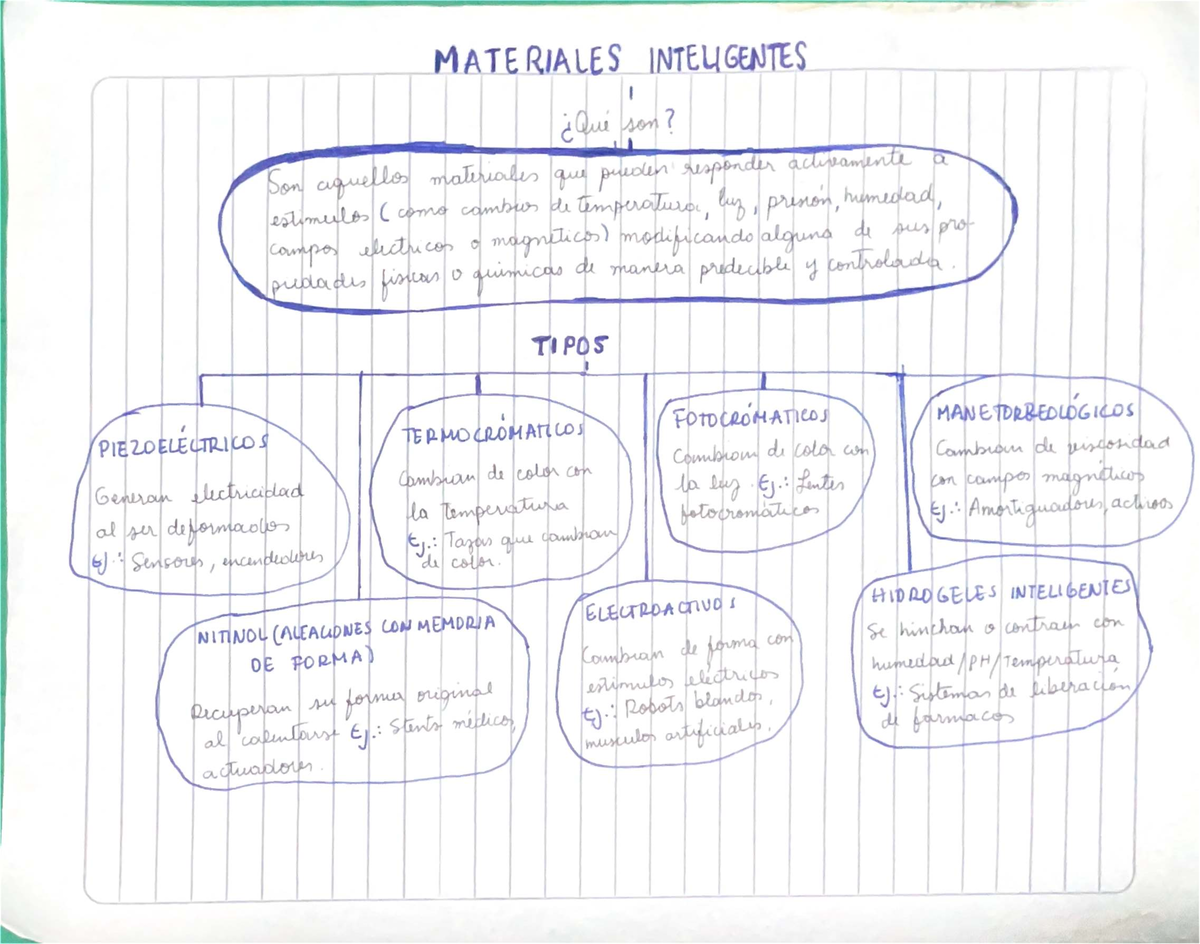 MATERIALES INTELIGENTES
¿Qué son?
Son aquellos materiales que pueden responder activamente a
estimulos (como cambios de temperatura, luz, presión, humedad,
campos electricos o magnéticos) modificando alguna de sus pro-
piedades físicas o químicas de manera predecible y controlada.
TIPOS
PIEZOELÉCTRICOS
Generan electricidad
al ser deformados
Ej.: Sensores, encendedores
TERMOCRÓMATICOS
Cambian de color con
la Temperatura
Ej.: Tazas que cambian
de color.
FOTOCRÓMATICOS
Cambian de color con
la luz. Ej.: Lentes
fotocromáticos
MANETORREOLÓGICOS
Cambian de viscosidad
con campos magnéticos
Ej.: Amortiguadores, activos
NITINOL (ALEACIONES CON MEMORIA
DE FORMA)
Recuperan su forma original
al calentarse Ej.: Stents médicos,
actuadores.
ELECTROACTIVOS
Cambian de forma con
estimulos eléctricos
Ej.: Robots blandos,
musculos artificiales.
HIDROGELES INTELIGENTES
Se hinchan o contraen con
humedad/PH/Temperatura
Ej.: Sistemas de liberación
de farmacos